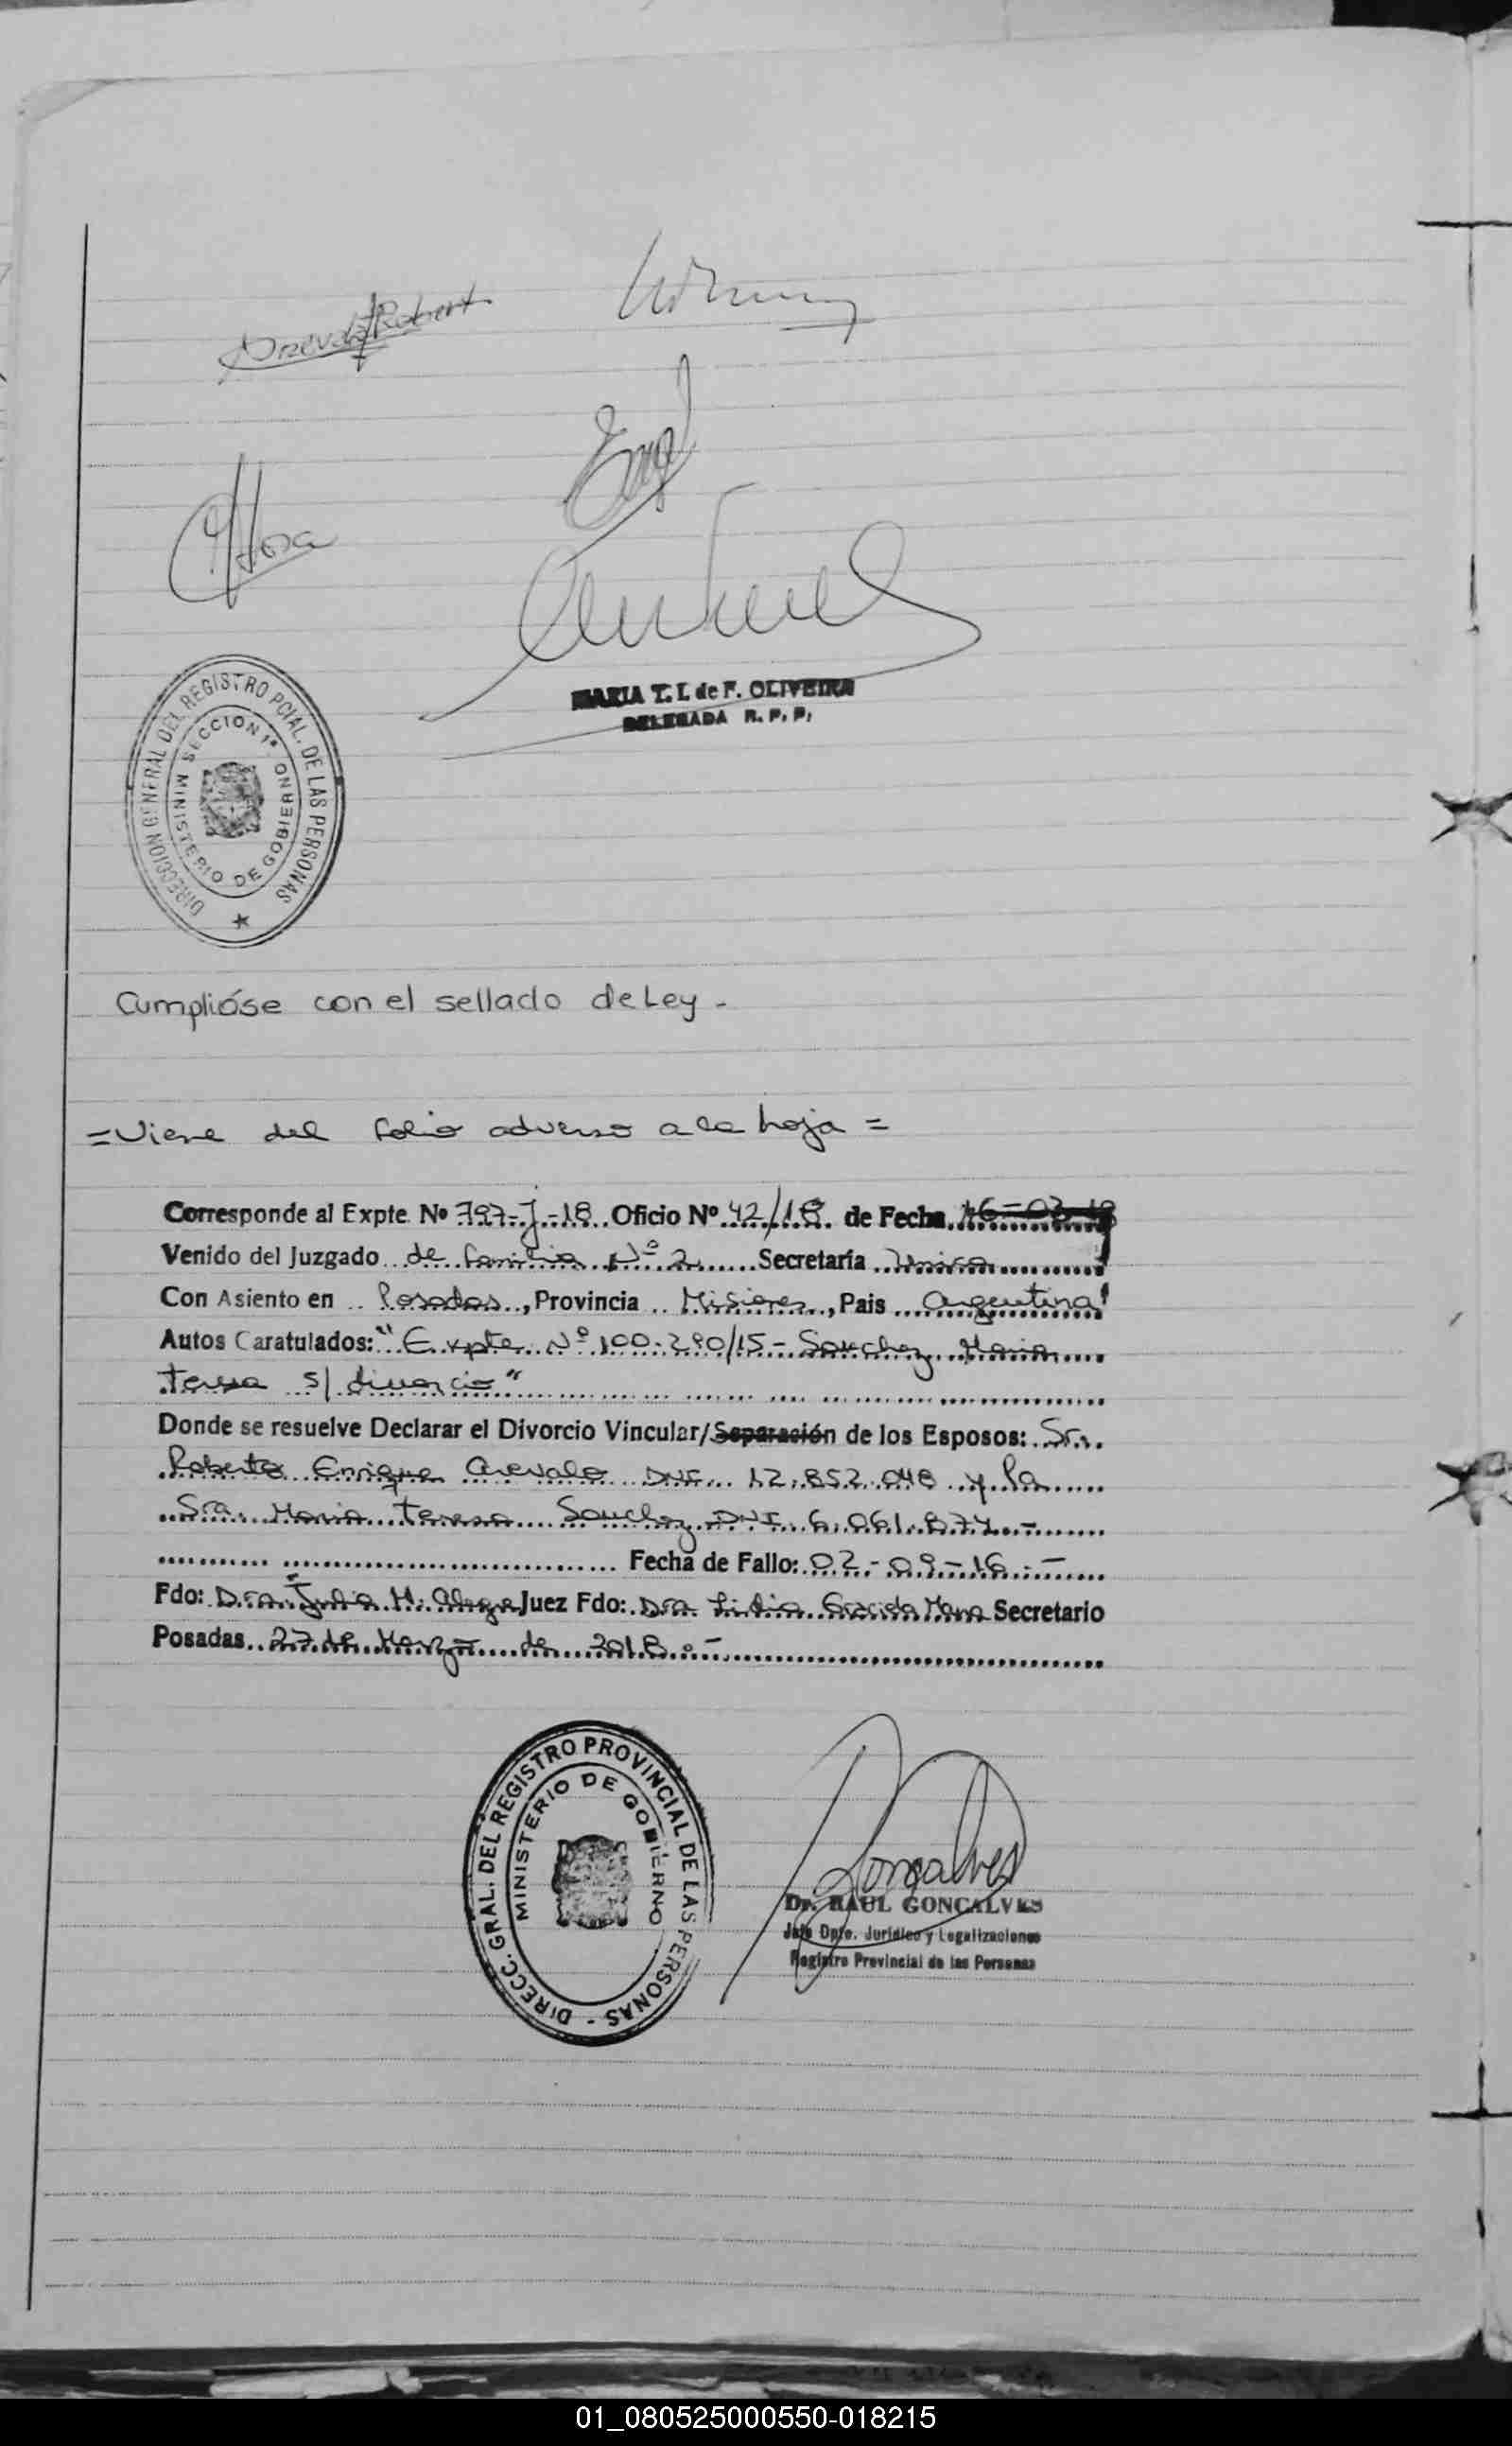 Arevalo Robert
MARIA T. I. de F. OLIVEIRA
DELEGADA R. P. P.
DIRECCION GENERAL DEL REGISTRO PCIAL. DE LAS PERSONAS
SECCION 1ª
MINISTERIO DE GOBIERNO
Cumplióse con el sellado de Ley -
= Viene del folio adverso a la hoja =
Corresponde al Expte Nº 797-J-18 Oficio Nº 42/18 de Fecha 16-03-18
Venido del Juzgado de familia Nº 2 Secretaría Unica
Con Asiento en Posadas, Provincia Misiones, Pais Argentina
Autos Caratulados: "Expte Nº 100.290/15 - Sanchez Maria
Teresa s/ divorcio"
Donde se resuelve Declarar el Divorcio Vincular/Separación de los Esposos: Sr.
Roberto Enrique Arevalo DNI 12.852.048 y la
Sra. Maria Teresa Sanchez DNI 6.061.874.-
Fecha de Fallo: 02-09-16.-
Fdo: Dra. Julia M. Alegre Juez Fdo: Dra. Lidia Graciela Mana Secretario
Posadas 27 de Marzo de 2018.-
DIRECC. GRAL. DEL REGISTRO PROVINCIAL DE LAS PERSONAS -
MINISTERIO DE GOBIERNO
Goncalves
Dr. RAUL GONCALVES
Jefe Dpto. Jurídico y Legalizaciones
Registro Provincial de las Personas
01_080525000550-018215